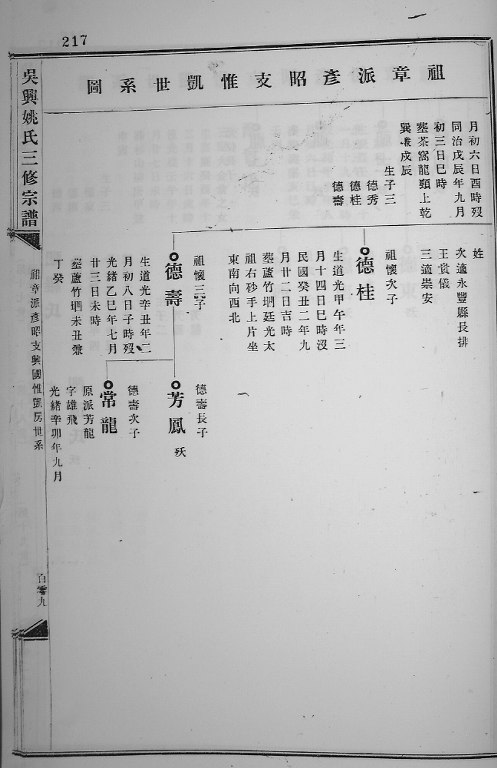 217
祖章派彥昭支惟凱世系圖
月初六日酉時歿
同治戊辰年九月
初三日巳時
塟茶窩龍頸上乾
巽兼戊辰
生子三
德秀
德桂
德壽
姓
次適永豐縣長排
王貲儀
三適崇安
德桂
祖懷次子
生道光甲午年三
月十四日巳時沒
民國癸丑二年九
月廿二日吉時
塟蘆竹垇廷光太
祖右砂手上片坐
東南向西北
德壽
祖懷三子
生道光辛丑年二
月初八日子時歿
光緒乙巳年七月
廿三日未時
塟蘆竹垇未丑兼
丁癸
芳鳳
德壽長子
殀
常龍
德壽次子
原派芳龍
字雄飛
光緒辛卯年九月
吳興姚氏三修宗譜
祖章派彥昭支興國惟凱房世系
百零九